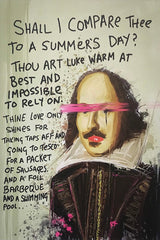 SHALL I COMPARE THEE
TO A SUMMER'S DAY?
THOU ART LUKE WARM AT
BEST AND
IMPOSSIBLE
TO RELY ON.
THINE LOVE ONLY
SHINES FOR
TAKING TAPS AFF AND
GOING TO TESCO
FOR A PACKET
OF SAUSAGES,
AND A FOLK
BARBEQUE
AND A SLIMMING
POOL.